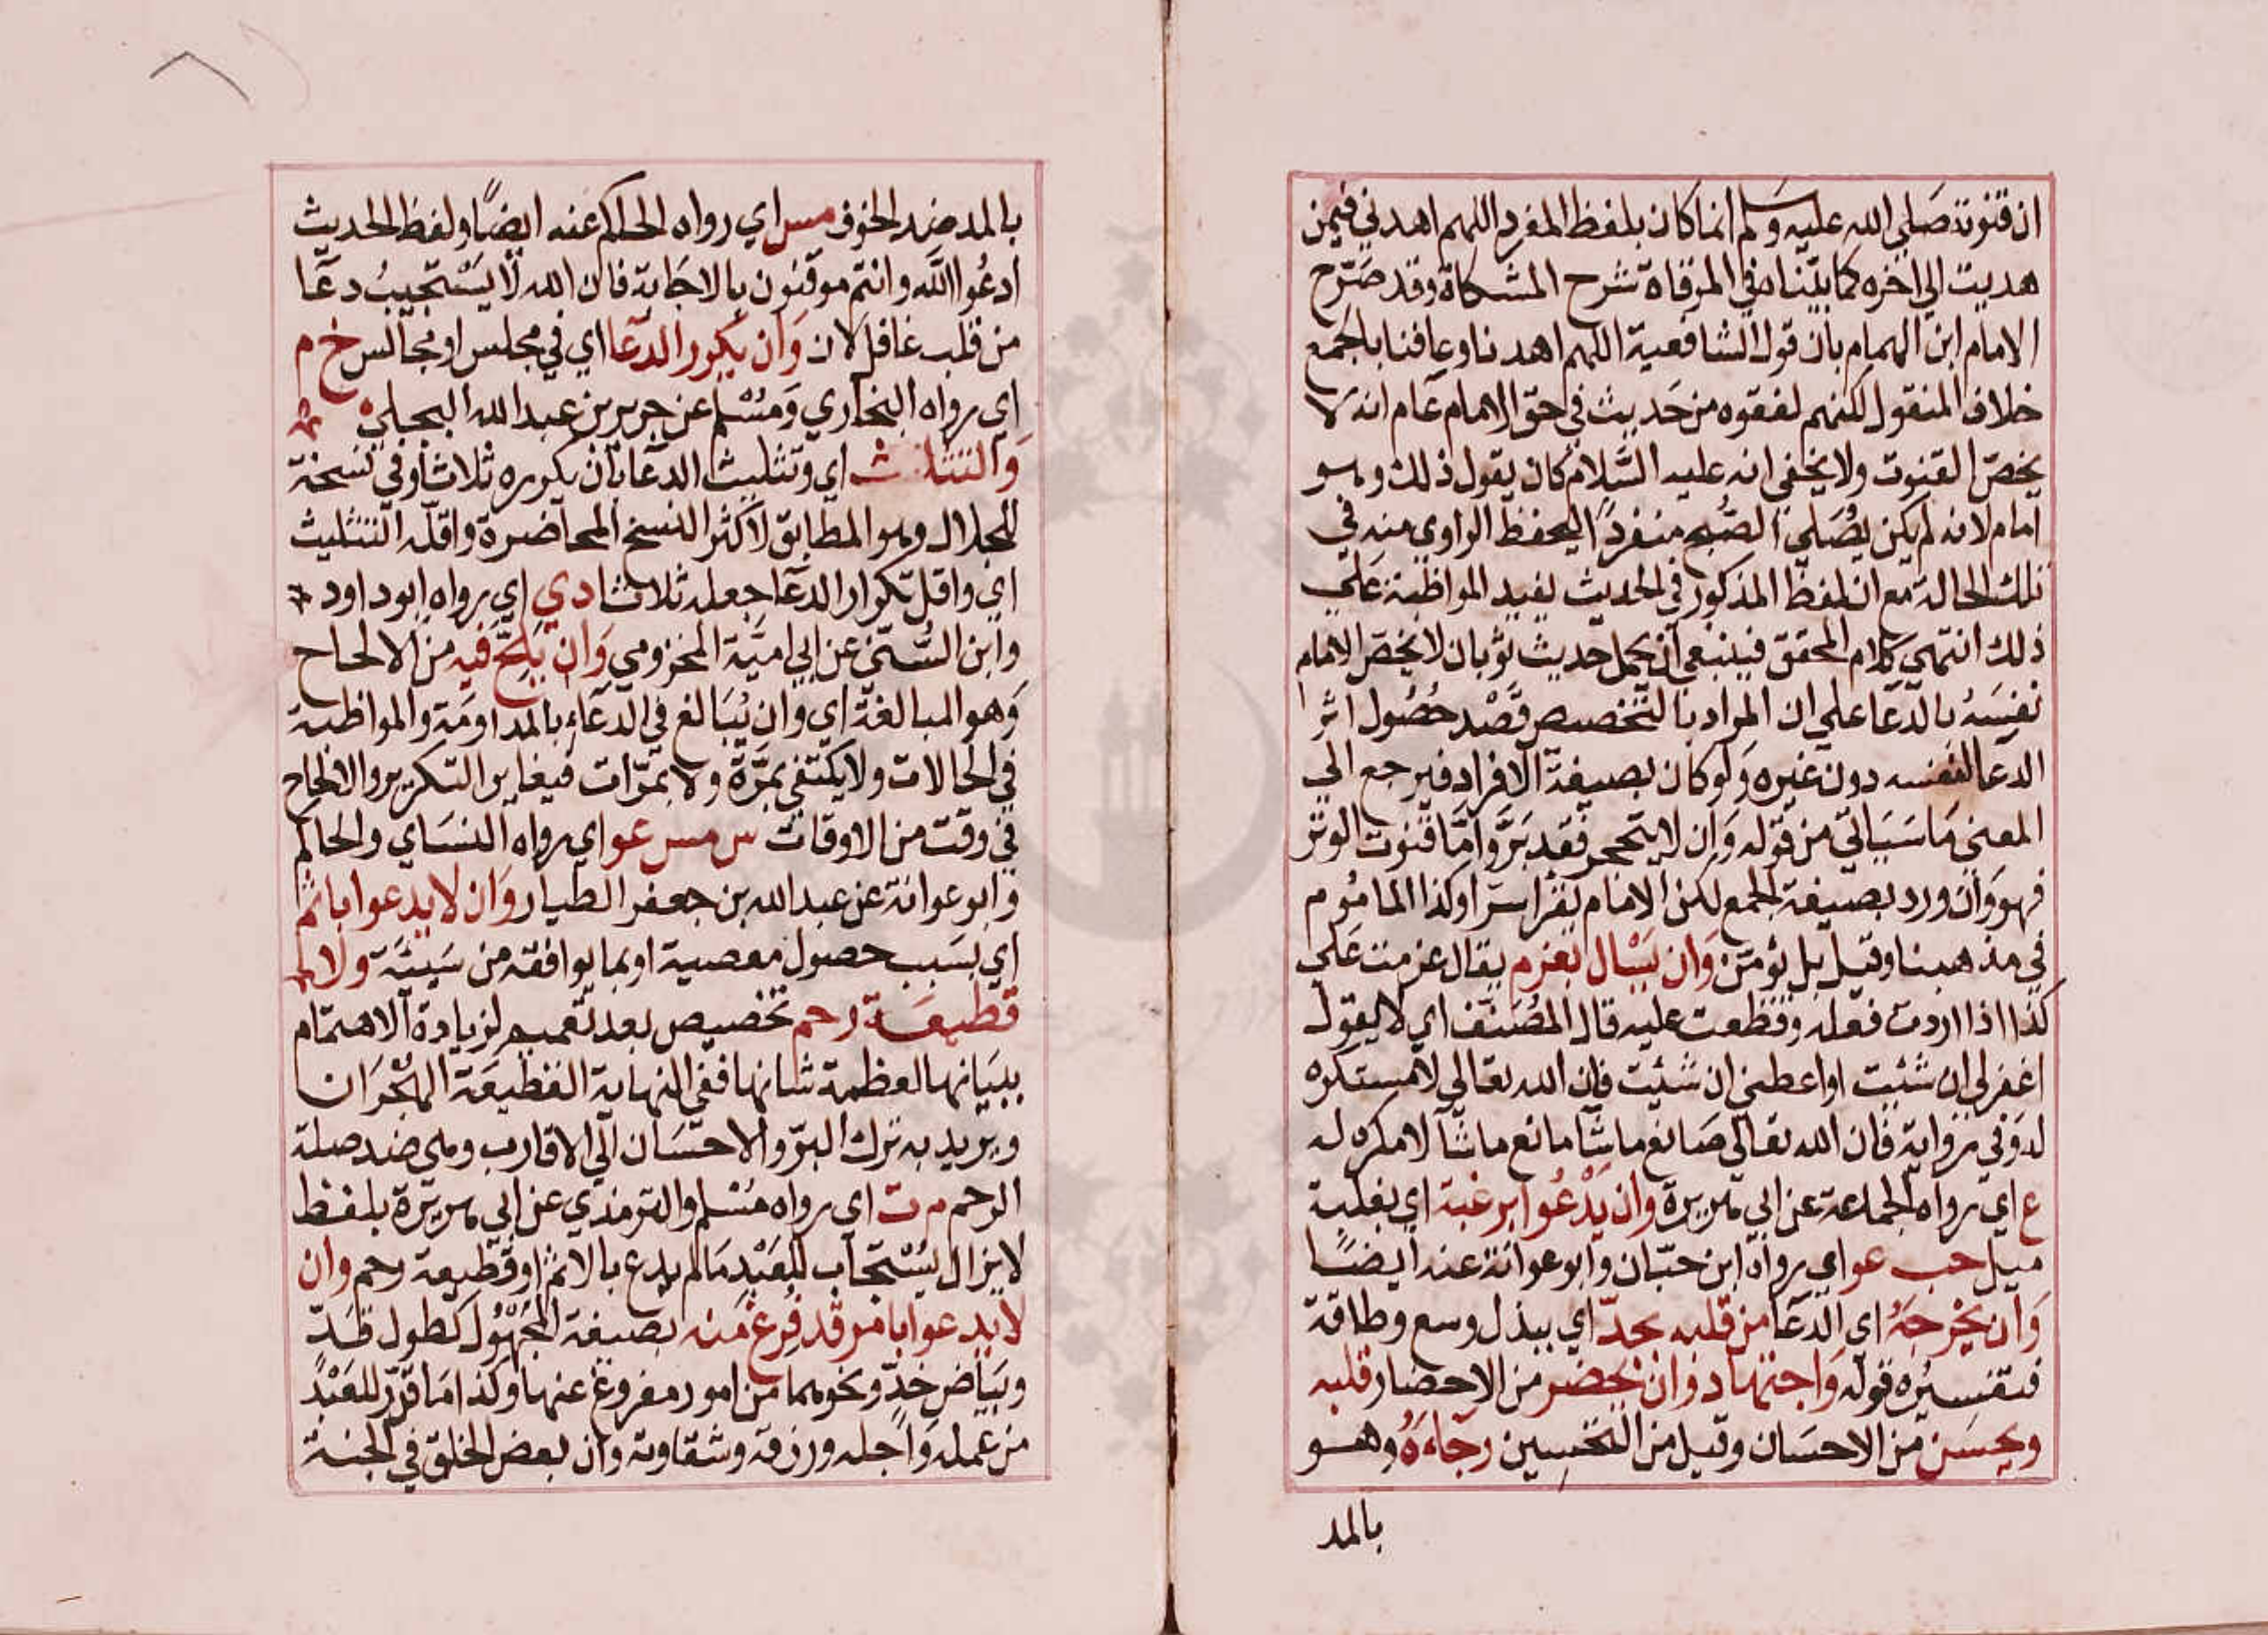 ان قنوته صلي الله عليه وسلم انما كان بلفظ المفرد اللهم اهدني فيمن
هديت الي اخره كما بيناه في المرقاة شرح المشكاة وقد صرّح
الامام ابن الهمام بان قول الشافعية اللهم اهدنا وعافنا بالجمع
خلاف المنقول لكنهم لفقوه من حديث في حق الامام عام انه لا
يخصّ القنوت ولا يخفي انه عليه السّلام كان يقول ذلك وهو
امام لانه لم يكن يُصَلي الصّبح منفردًا ليحفظ الراوي منه في
تلك الحالة مع ان لفظ المذكور في الحديث يفيد المواظبة علي
ذلك انتهي كلام المحقق فينبغي ان يحمل حديث ثوبان لا يخصّ الامام
نفسَهُ بالدّعا علي ان المراد بالتّخصيص قصْد حُصُول اثر
الدعا لنفسه دون غيره وَلو كان بصيغة الافراد فيرجع الي
المعني مَا سَيَاتي من قوله وَان لا يتحجر فقد بَرّ وامّا قنوت الوتر
فهو وَان ورد بصيغة الجمع لكن الامام يقرا سرّا وكذا الماموم
في مذهبنا وقيل بل يؤمّن وَان يَسْال بعزم يقال عزمت عَلي
كذا اذا اردت فعله وقطعت عليه قال المُصَنف اي لا يقول
اغفر لي ان شئت او اعطني ان شئت فان الله تعالي لا مستكره
له وَفي رواية فان الله تعالي صَانع ما شا مانع ما شآ لا مكره له
ع اي رواه الجماعة عن ابي هريرة وان يَدْعُوا برغبة اي بغلبة
ميل حب عو اي رواه ابن حبّان وابو عوانة عنه ايضًا
وَان يُخْرجَهُ اي الدّعا من قلبه بجدّ اي ببذل وسع وطاقة
فتفسيره قوله وَاجتهاد وان يحضر من الاحضار قلبه
ويحسَن من الاحسَان وقيل من التحسين رجَاءهُ وهو
بالمد
بالمد ضد الخوف مس اي رواه الحاكم عنه ايضًا ولفظ الحديث
ادعُوا اللّه وانتم موقنون بالاجَابة فان الله لا يَسْتجيبُ دعَا
من قلب غافل لان وَان يكرر الدعا اي في مجلس او مجالس خ م
اي رواه البخاري وَمسْلم عن جرير بن عبد الله البجلي
وَالتثليث اي وتثليث الدعا بان يكرره ثلاثا وفي نسخة
للجلال وهو المطابق لاكثر النسخ المحاضرة واقلّه التثليث
اي واقل تكرار الدعا جعله ثلاثا د ي اي رواه ابو داود
وابن السُّنّي عن ابي اميّة المخزومي وَان يلحّ فيه من الالحاح
وَهو المبالغة اي وان يُبَالغ في الدعَاءِ بالمداومَة والمواظبة
في الحالات ولا يكتفي بمَرّة ولا بمرّات فيغاير التكرير والالحاح
في وقت من الاوقات س مس عو اي رواه النسَاي والحاكم
وابو عوانة عن عبد الله بن جعفر الطيار وَان لا يدعوا باثم
اي بسَبب حصول معصية او بما يوافقه من سَيئَة ولا
قطيعَة رحم تخصيص بعد تعميم لزيادة الاهتمام
ببيَانها لعظمة شانها ففي النهاية القطيعَة الهجْرَان
ويريد به ترك البرّ والاحسَان الي الاقارب وهي ضد صلة
الرحم م ت اي رواه مُسْلم والترمذي عن ابي هريرة بلفظ
لا يزال يُسْتجاب للعَبْدِ مَا لم يدع بالاثم او قطيعة رحم وان
لا يدعوا بامر قد فُرغ منه بصيغة المجْهُول كطول قدّ
وبَيَاض خدّ ونحوهما من امور مفروغ عنها وكذا مَا قرّر للعَبْد
من عمله وَاجله ورزقه وشقاوته وان بعض الخلق في الجنة